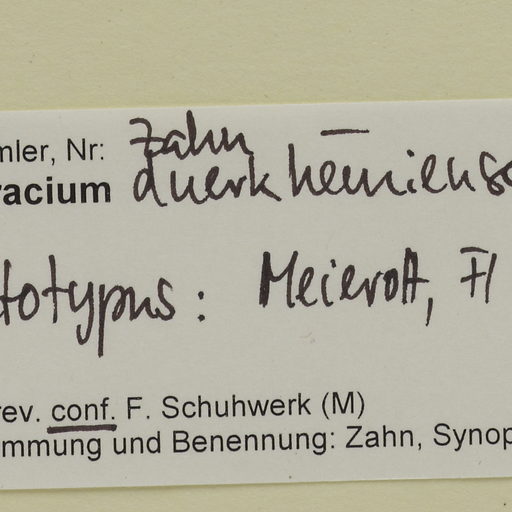 mler, Nr: Zahn —
racium duerkhemiense
totypus: Meierott, Fl
rev. conf. F. Schuhwerk (M)
mmung und Benennung: Zahn, Synop